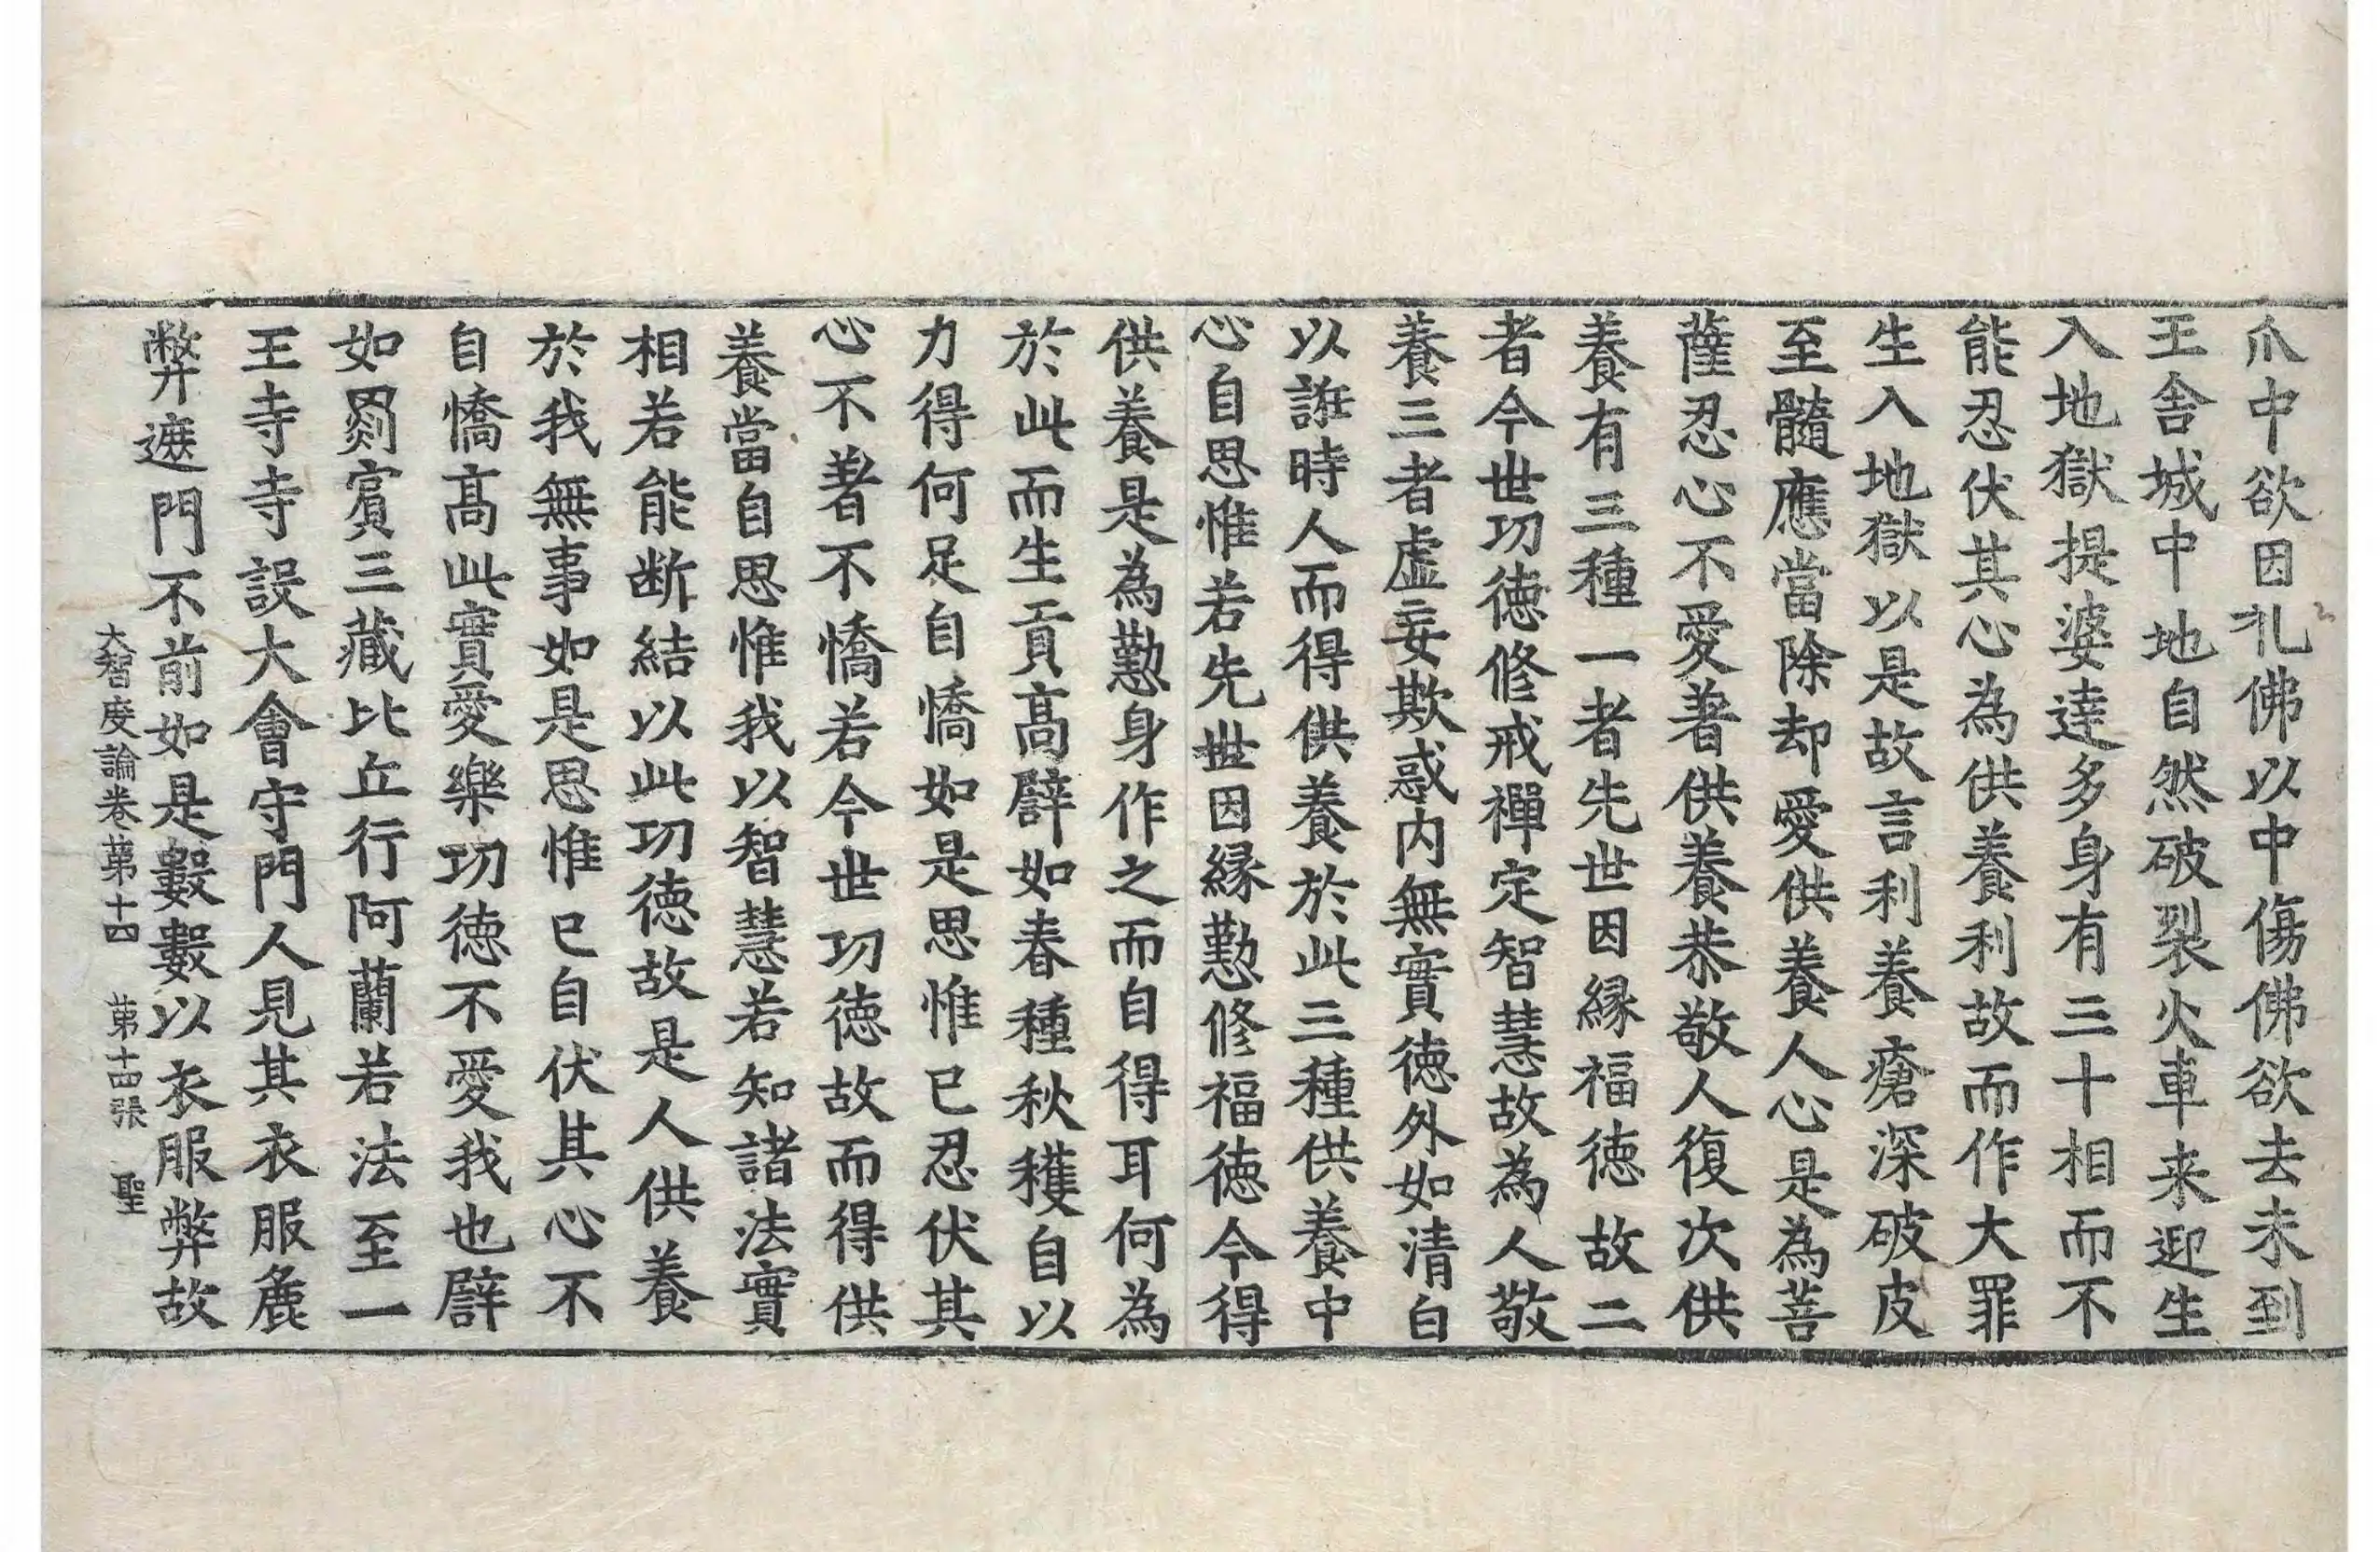 爪中欲因礼佛以中傷佛欲去未到
王舎城中地自然破裂火車来迎生
入地獄提婆達多身有三十相而不
能忍伏其心為供養利故而作大罪
生入地獄以是故言利養瘡深破皮
至髓應當除却愛供養人心是為菩
薩忍心不愛著供養恭敬人復次供
養有三種一者先世因縁福徳故二
者今世功徳修戒禪定智慧故為人敬
養三者虚妄欺惑内無實徳外如清白
以誑時人而得供養於此三種供養中
心自思惟若先世因縁懃修福徳今得
供養是為懃身作之而自得耳何為
於此而生貢髙譬如春種秋穫自以
力得何足自憍如是思惟已忍伏其
心不著不憍若今世功徳故而得供
養當自思惟我以智慧若知諸法實
相若能断結以此功徳故是人供養
於我無事如是思惟已自伏其心不
自憍髙此實愛樂功徳不愛我也譬
如罽賓三藏比丘行阿蘭若法至一
王寺寺設大會守門人見其衣服麁
弊遮門不前如是數數以衣服弊故
大智度論卷第十四 第十四張 聖